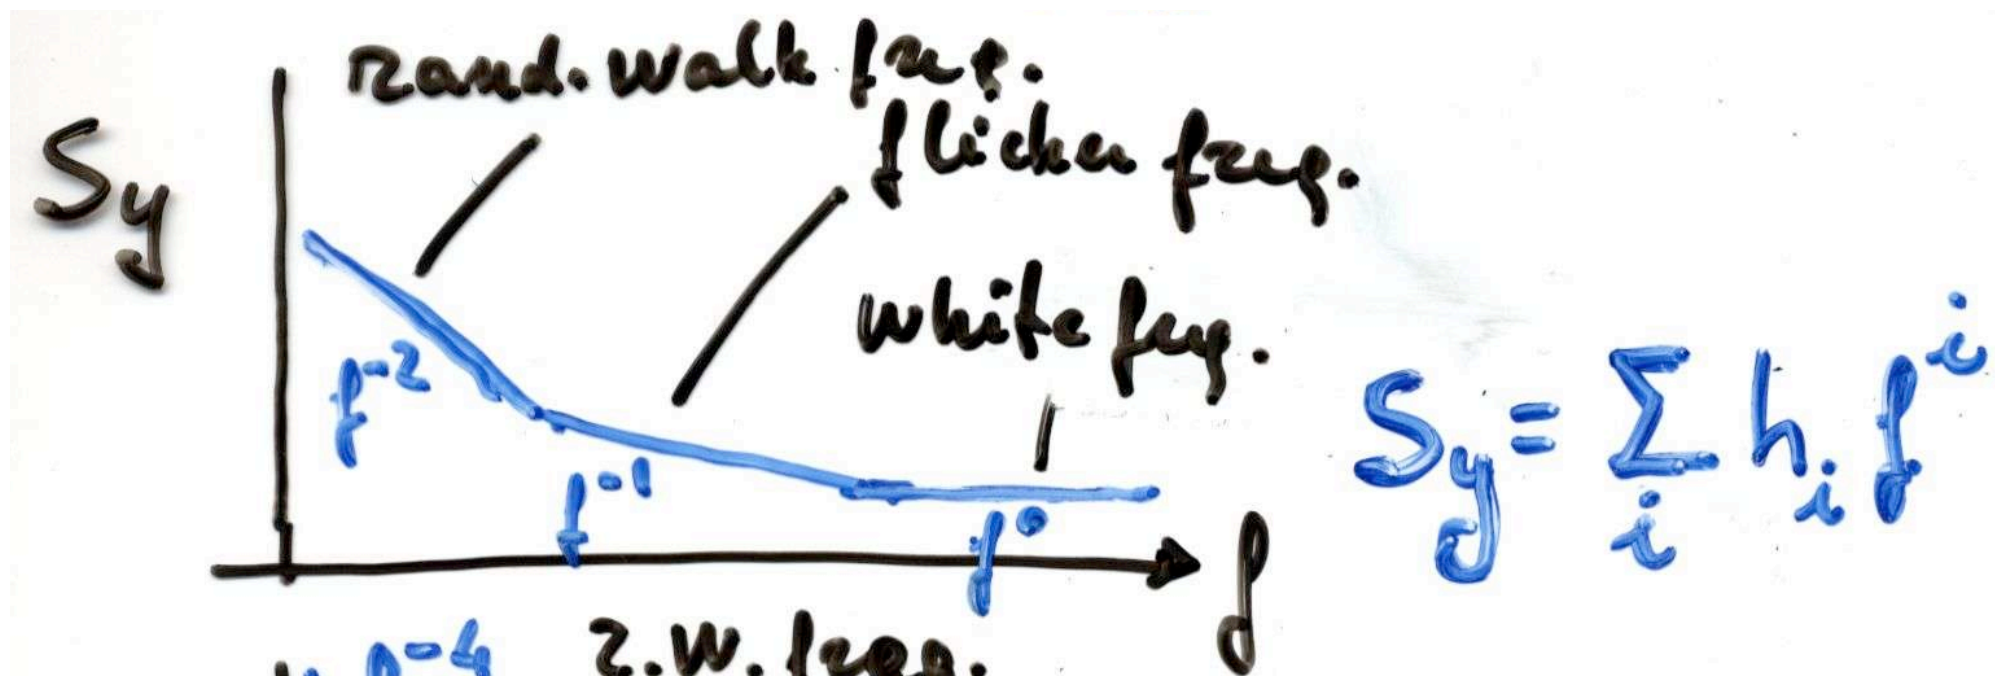 rand. walk freq.
S_y
flicker freq.
white freq.
f^{-2}
f^{-1}
f^0
f
S_y = \sum_i h_i f^i
f^{-4} r.w. freq.